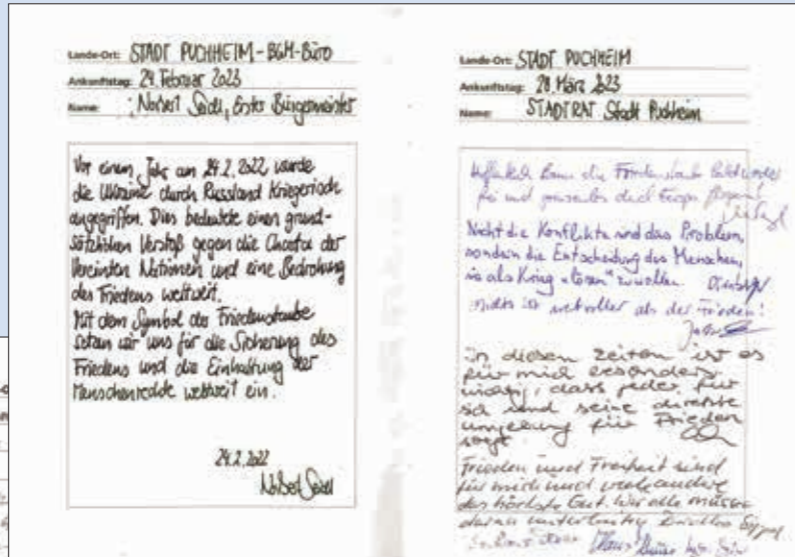 Lande-Ort: STADT PUCHHEIM-BGM-Büro
Ankunftstag: 24. Februar 2023
Name: Norbert Seidl, Erster Bürgermeister
Vor einem Jahr am 24.2.2022 wurde
die Ukraine durch Russland kriegerisch
angegriffen. Dies bedeutete einen grund-
sätzlichen Verstoß gegen die Charta der
Vereinten Nationen und eine Bedrohung
des Friedens weltweit.
Mit dem Symbol der Friedenstaube
setzen wir uns für die Sicherung des
Friedens und die Einhaltung der
Menschenrechte weltweit ein.
24.2.2022
Norbert Seidl
Lande-Ort: STADT PUCHHEIM
Ankunftstag: 28. März 2023
Name: STADTRAT Stadt Puchheim
Hoffentlich kann die Friedenstaube bald wieder
frei und durch Europa fliegen!
Nicht die Konflikte sind das Problem,
sondern die Entscheidung des Menschen,
sie als Krieg "lösen" zu wollen.
nichts ist wertvoller als der Frieden!
In diesen Zeiten ist es
für mich besonders
wichtig, dass jeder für
sich und seine direkte
Umgebung für Frieden
sorgt.
Frieden und Freiheit sind
für mich und viele andere
das höchste Gut. Wir alle müssen
daran